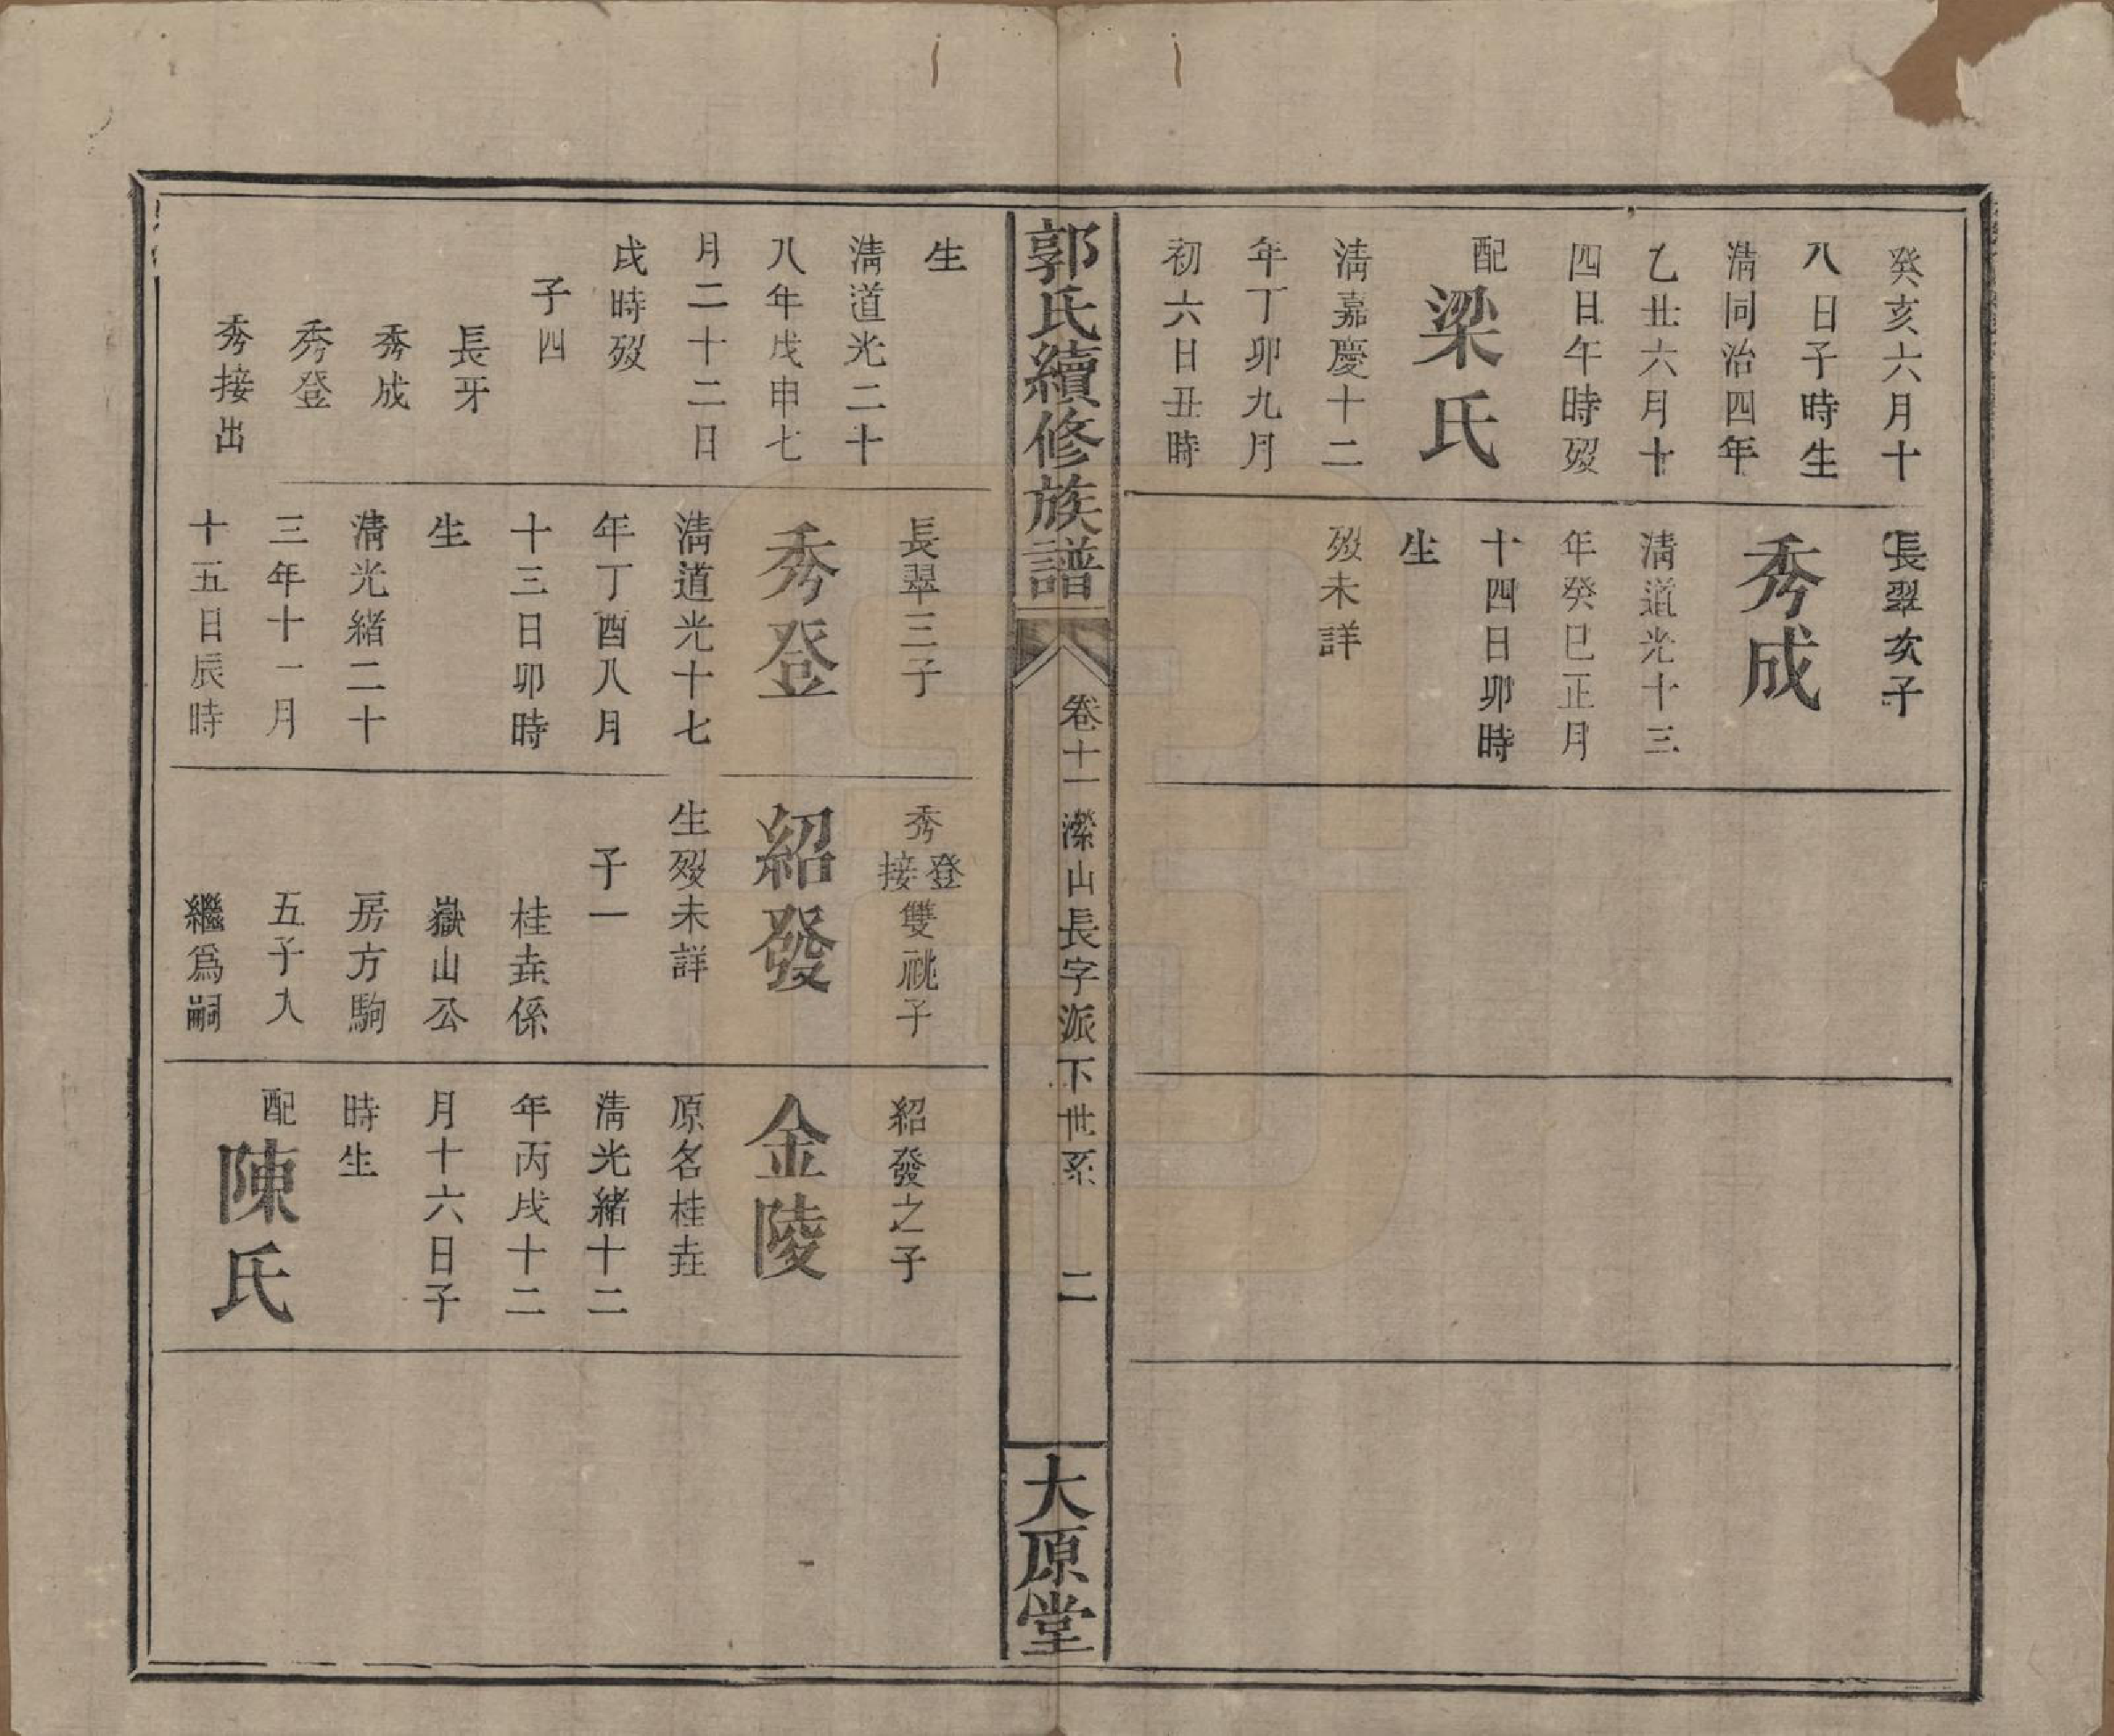 癸亥六月十
八日子時生
清同治四年
乙丑六月十
四日午時歿
配梁氏
清嘉慶十二
年丁卯九月
初六日丑時
長翠次子
秀成
清道光十三
年癸巳正月
十四日卯時
生
歿未詳
郭氏續修族譜
卷十一 濼山長字派下世系 二
大原堂
生
清道光二十
八年戊申七
月二十二日
戌時歿
子四
長牙
秀成
秀登
秀接出
長翠三子
秀登
清道光十七
年丁酉八月
十三日卯時
生
清光緒二十
三年十一月
十五日辰時
秀登接雙祧子
紹發
生歿未詳
子一
桂垚係
嶽山公
房方駒
五子入
繼為嗣
紹發之子
金陵
原名桂垚
清光緒十二
年丙戌十二
月十六日子
時生
配陳氏